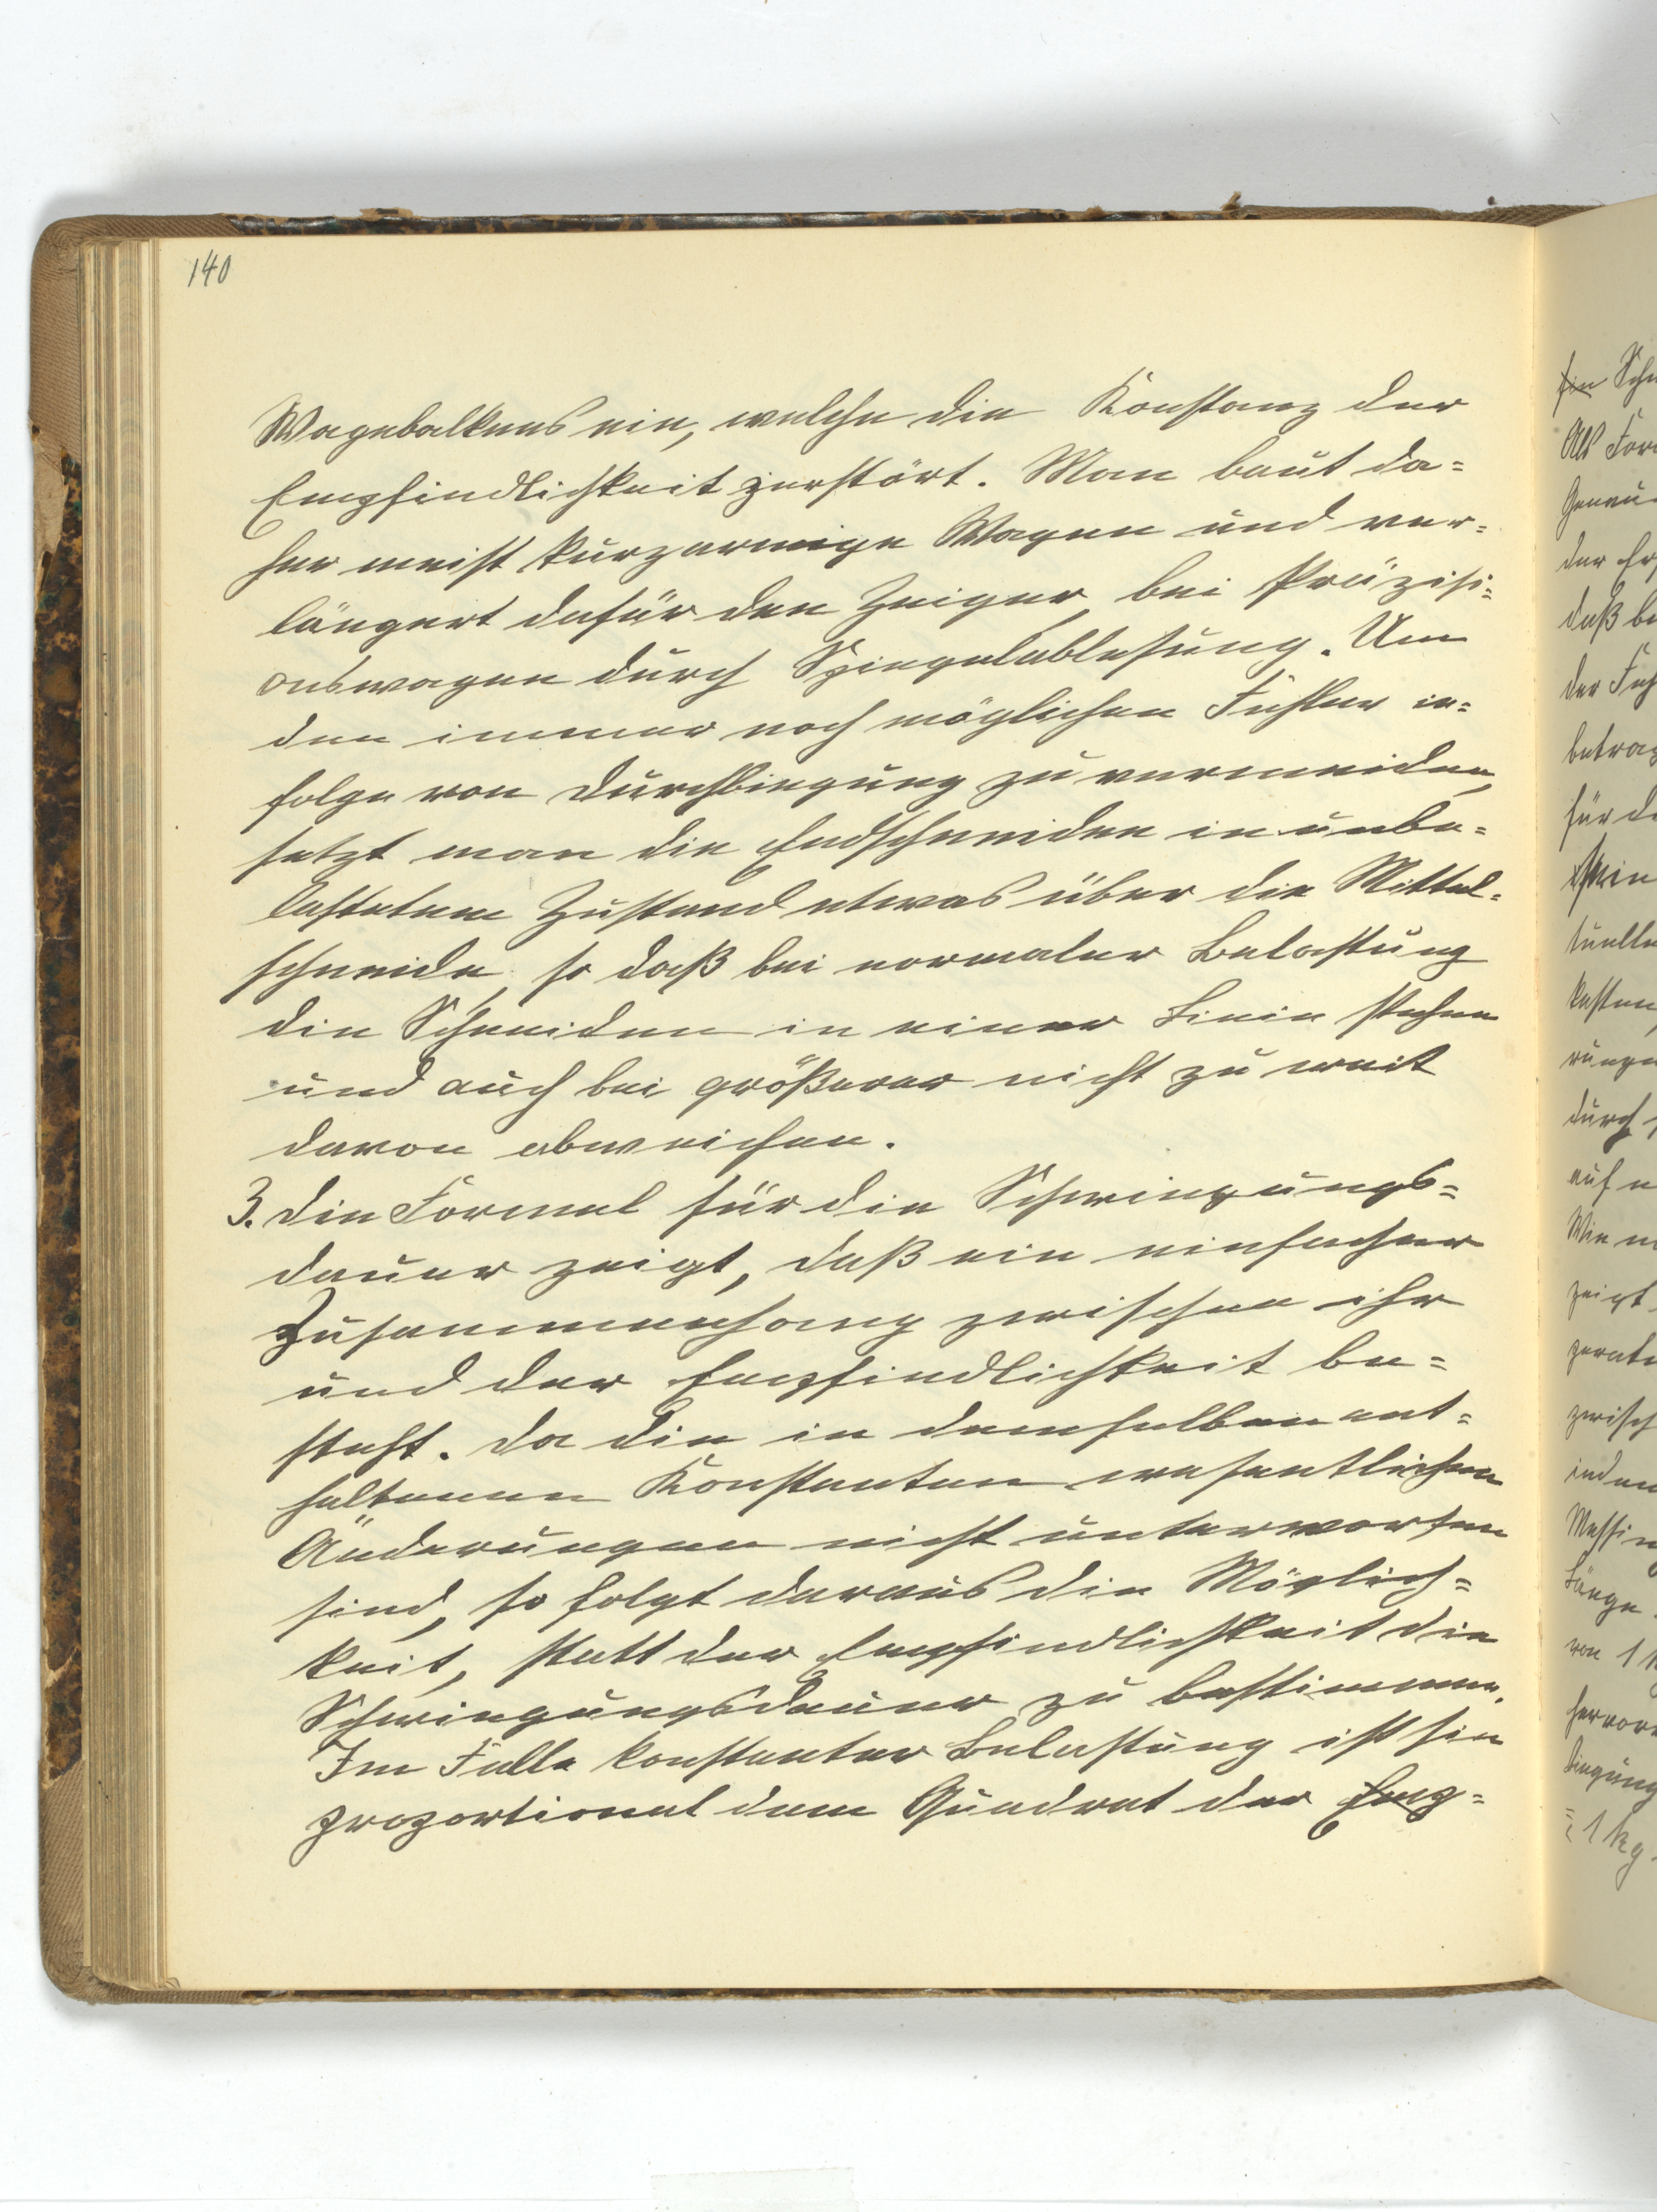 140
Wagebalkens ein, welche die Konstanz der
Empfindlichkeit zerstört. Man baut da=
her meist kurzarmige Wagen und ver=
längert dafür den Zeiger, bei Präzisi=
onswagen durch Spiegelablesung. Um
den immer noch möglichen Fehler in=
folge von Durchbiegung zu vermeiden,
setzt man die Endschneiden in unbe=
lastetem Zustand etwas über die Mittel=
schneide, so daß bei normaler Belastung
die Schneiden in einer Linie stehen
und auch bei größerer nicht zu weit
davon abweichen.
3. Die Formel für die Schwingungs=
dauer zeigt, daß ein einfacher
Zusammenhang zwischen ihr
und der Empfindlichkeit be=
steht. Da die in demselben ent=
haltenen Konstanten wesentlichen
Änderungen nicht unterworfen
sind, so folgt daraus die Möglich=
keit, statt der Empfindlichkeit die
Schwingungsdauer zu bestimmen.
Im Falle konstanter Belastung ist sie
proportional dem Quadrat der Emp=
Als
der
daß
der
für
durch
zeigt
von 1
= 1 kg.